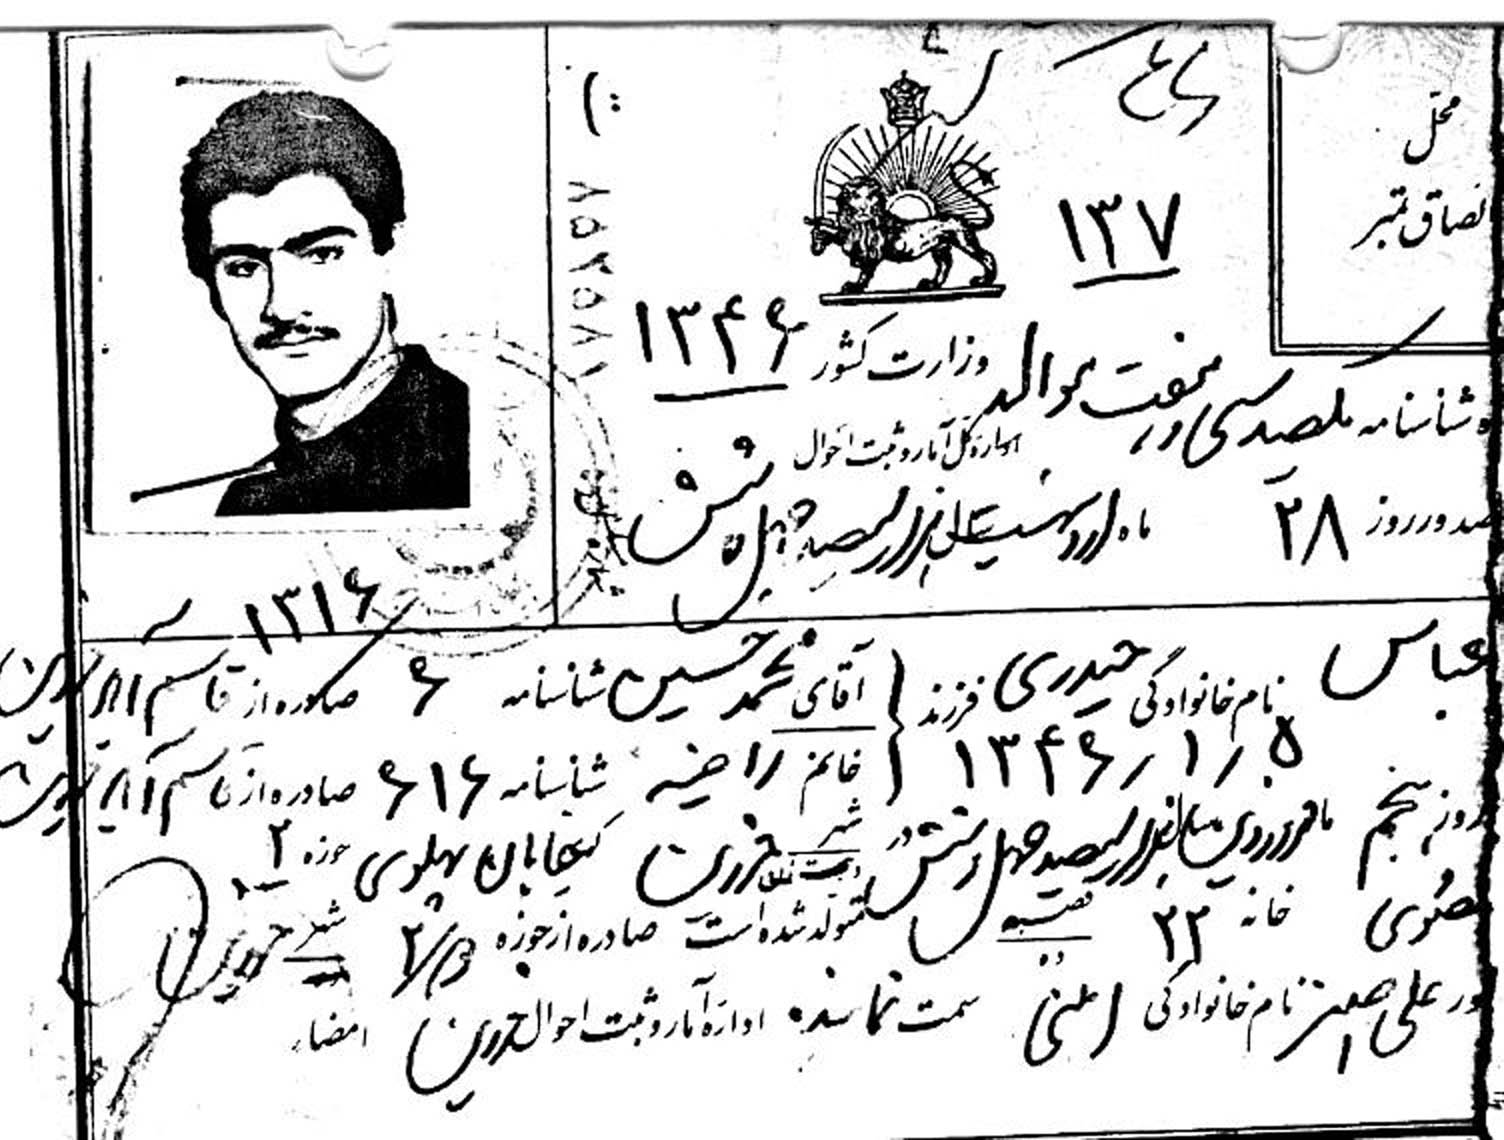 محل
الصاق تمبر
۱۳۷
۱۳۴۶
وزارت کشور
شناسنامه یکصد سی و هفت موالد
اداره کل آمار و ثبت احوال
صدور روز ۲۸ ماه اردیبهشت سال هزار سیصد چهل و شش
۱۳۱۶
عباس نام خانوادگی حیدری فرزند آقای محمد حسین شناسنامه ۶ صادره از قاسم آباد
۱۳۴۶/۱/۵ خانم راضیه شناسنامه ۶۱۶ صادره از قاسم آباد
روز پنجم ماه فروردین سال هزار سیصد چهل و شش در شهر خیابان پهلوی حوزه ۲
خانه ۲۳ قصبه متولد شده است صادره از حوزه ۲ شهر
علی اصغر نام خانوادگی سمت نماینده اداره آمار و ثبت احوال امضاء